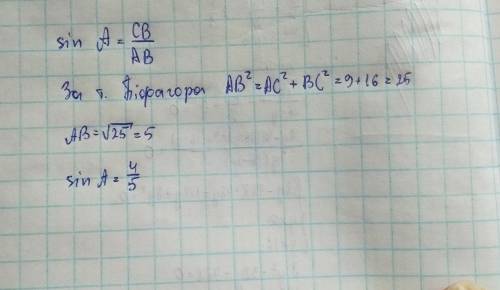 sin A = CB/AB
За т. Піфагора AB² = AC² + BC² = 9 + 16 = 25
AB = √25 = 5
sin A = 4/5